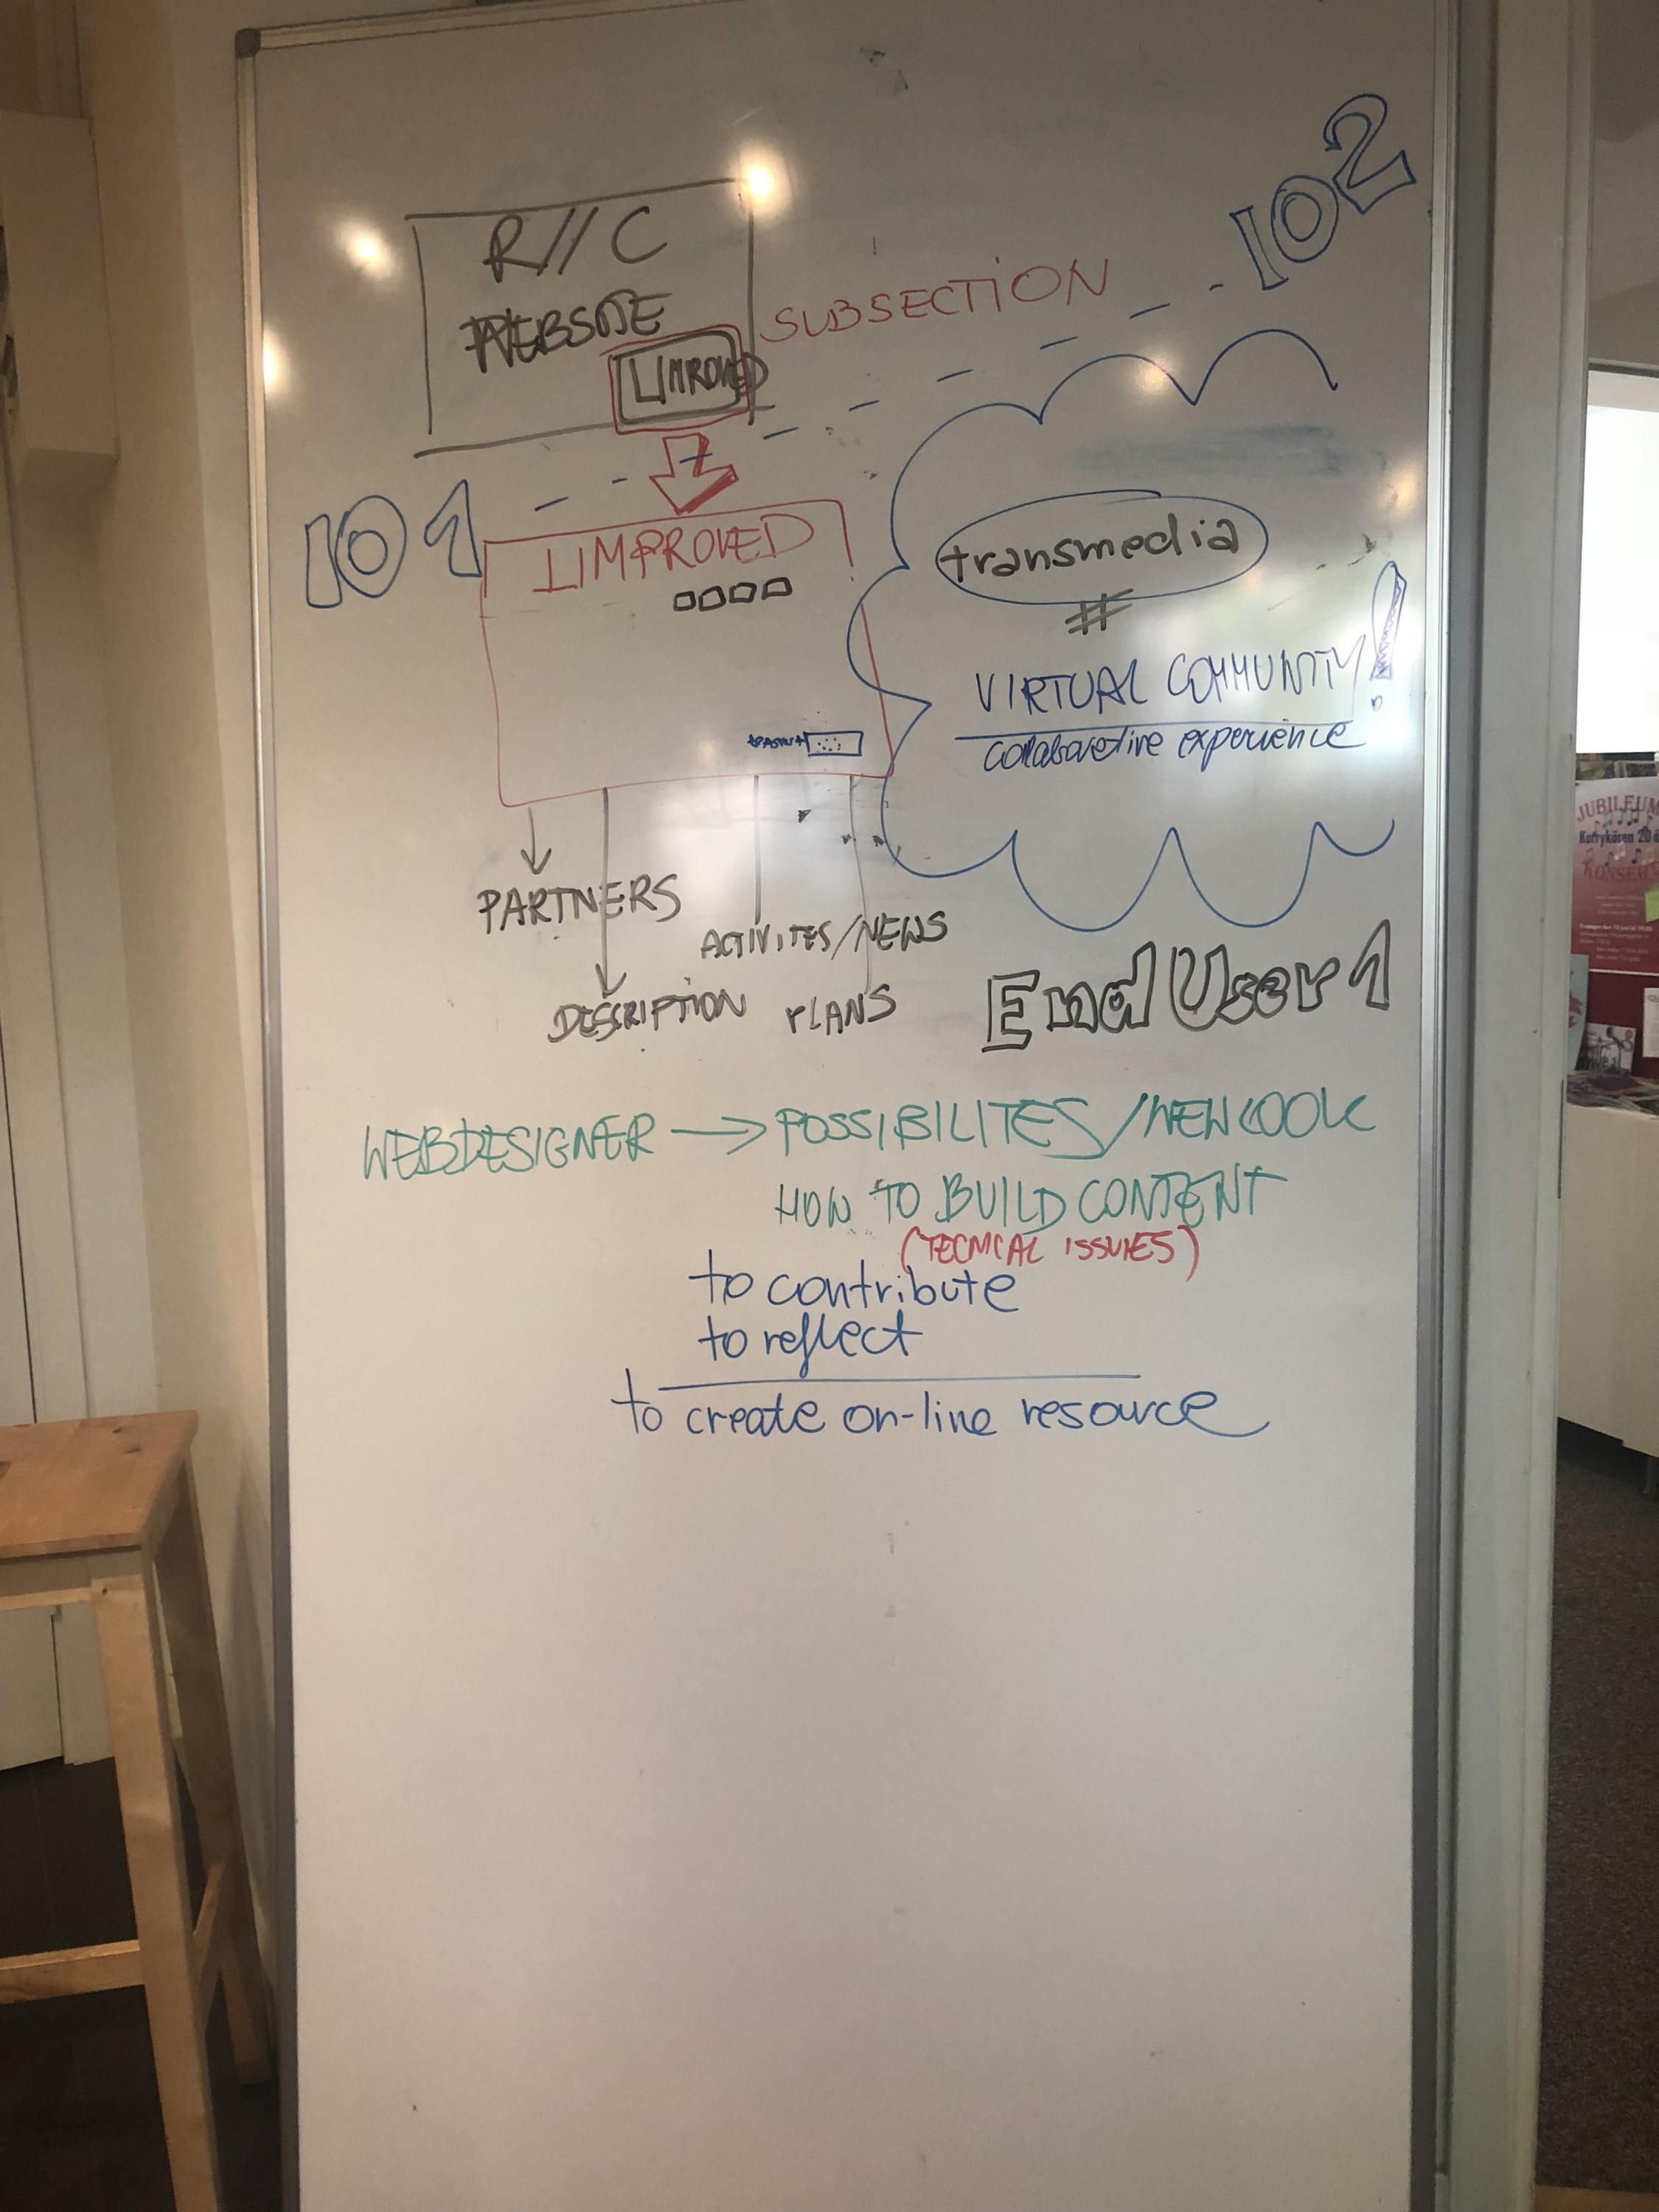 102
R//C
WEBSITE
SUBSECTION
LIMPROVED
101
LIMPROVED
transmedia
#
VIRTUAL COMMUNITY!
collaborative experience
PARTNERS
ACTIVITES/NEWS
DESCRIPTION
PLANS
End User 1
WEBDESIGNER → POSSIBILITES/NEW LOOK
HOW TO BUILD CONTENT
(TECNICAL ISSUES)
to contribute
to reflect
to create on-line resource
JUBILEUM
KONSERT